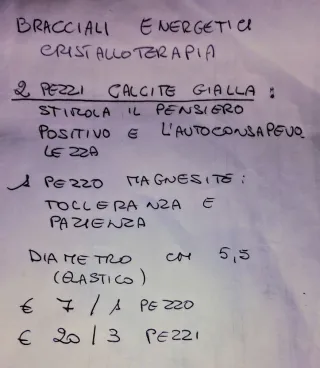 BRACCIALI ENERGETICI
CRISTALLOTERAPIA
2 PEZZI CALCITE GIALLA:
STIMOLA IL PENSIERO
POSITIVO E L'AUTOCONSAPEVO
LEZZA
1 PEZZO MAGNESITE:
TOLLERANZA E
PAZIENZA
DIAMETRO CM 5,5
(ELASTICO)
€ 7 / 1 PEZZO
€ 20 / 3 PEZZI